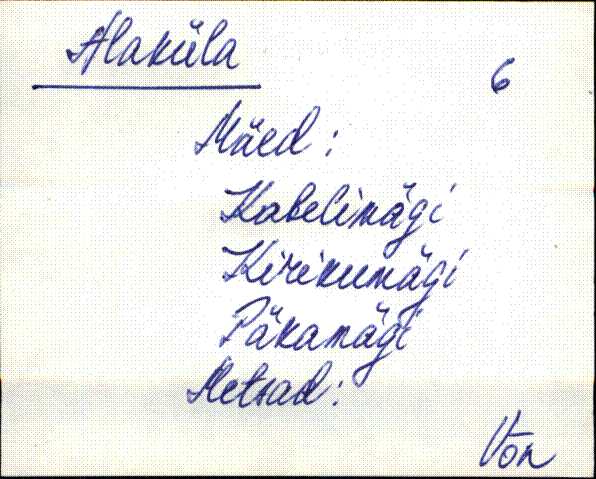 Alaküla
6
Mäed:
Kabelimägi
Kirikumägi
Päkamägi
Metsad:
Võn